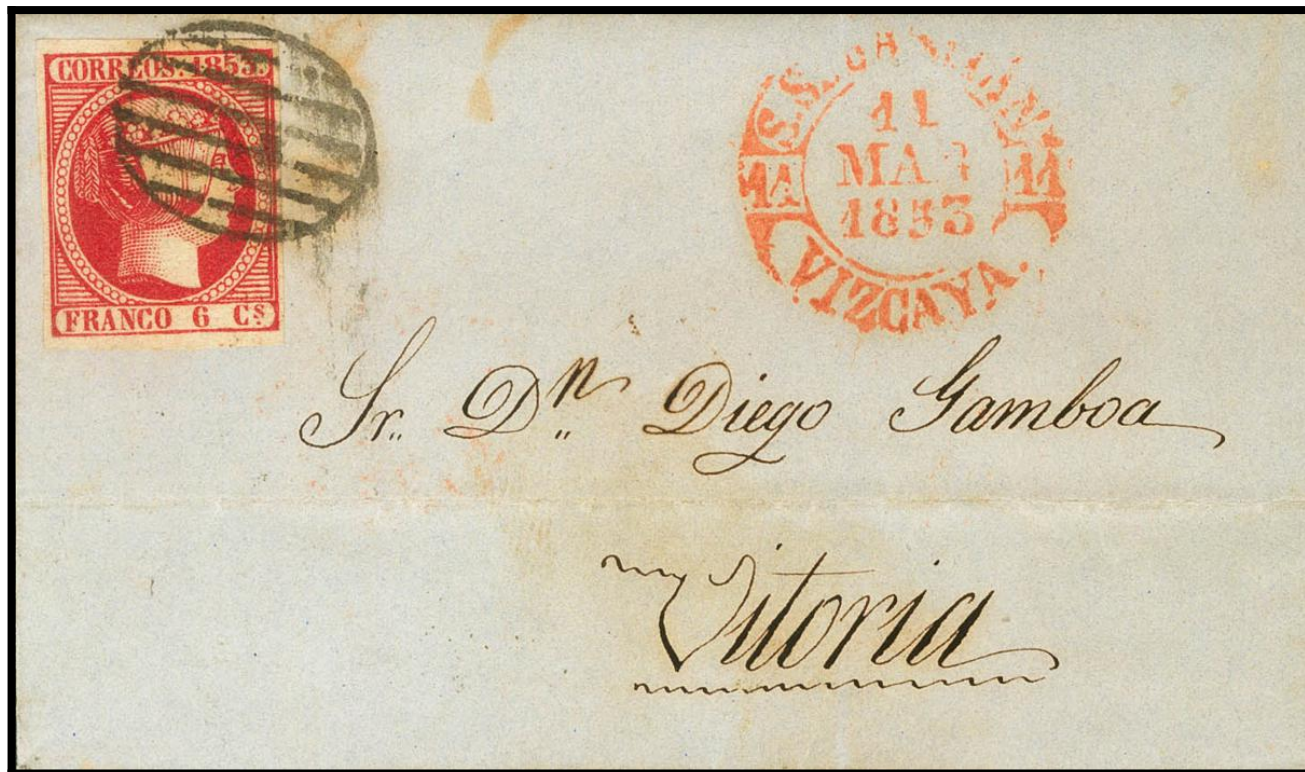 CORREOS. 1853.
FRANCO 6 Cs
11
MAR
1853
11 11
VIZCAYA.
Sr. Dn Diego Gamboa
Vitoria